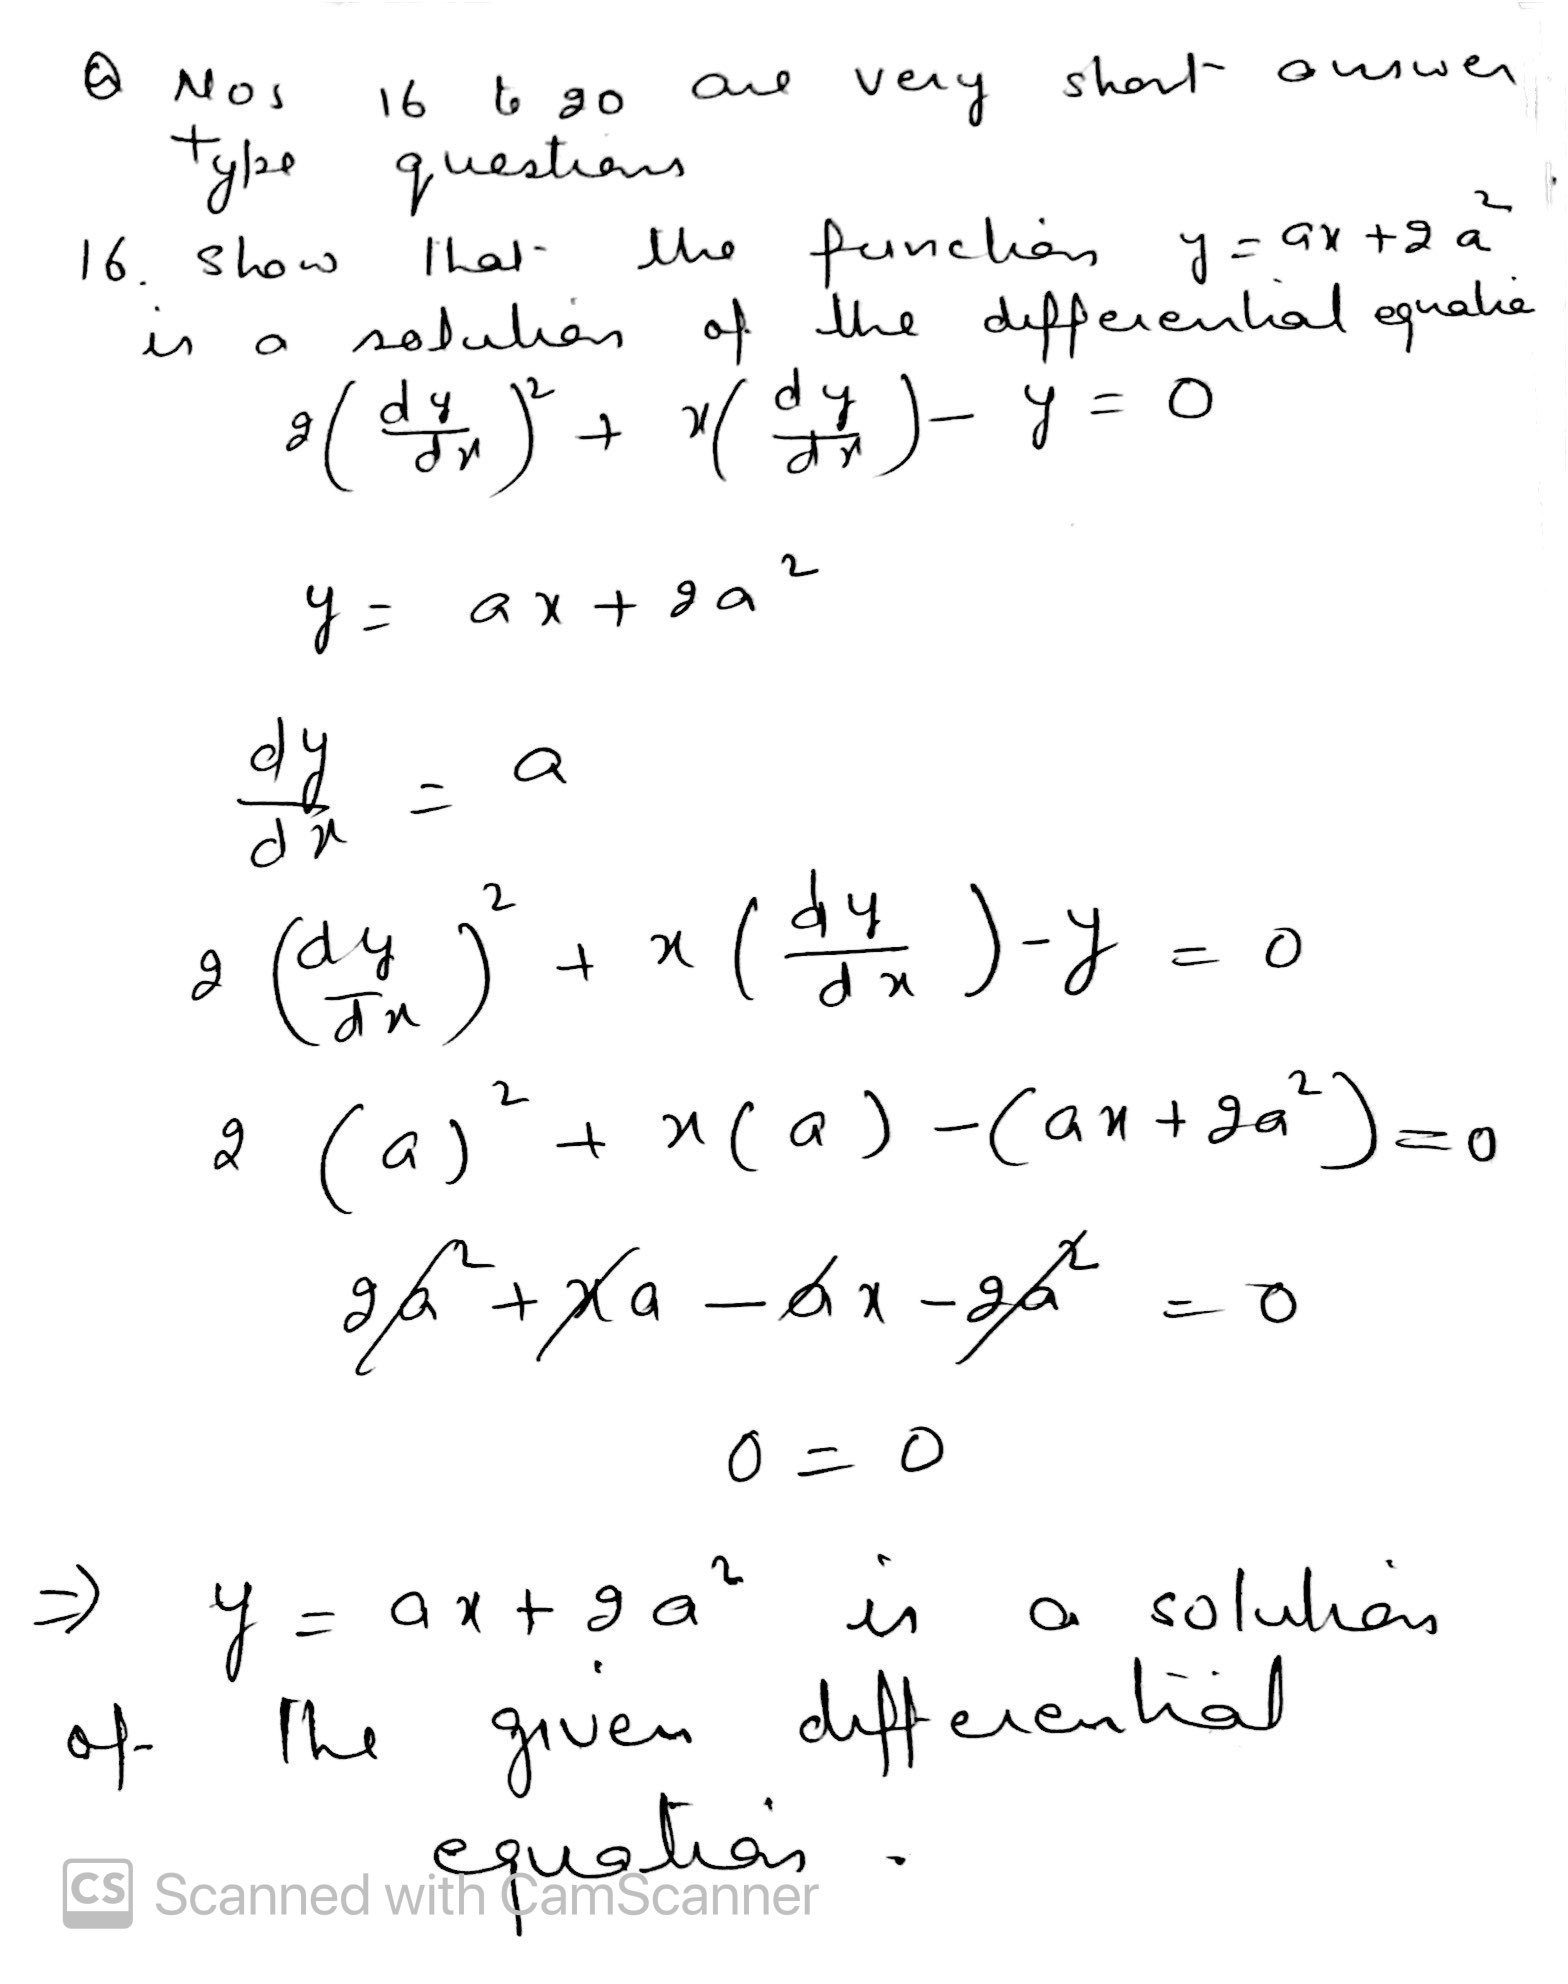 Q Nos 16 to 20 are very short answer
type questions
16. Show that the function y = ax + 2a²
is a solution of the differential equatio
2(dy/dx)² + x(dy/dx) - y = 0
y = ax + 2a²
dy/dx = a
2(dy/dx)² + x(dy/dx) - y = 0
2(a)² + x(a) - (ax + 2a²) = 0
2a² + xa - ax - 2a² = 0
0 = 0
⇒ y = ax + 2a² is a solution
of the given differential
equation.
CS Scanned with CamScanner